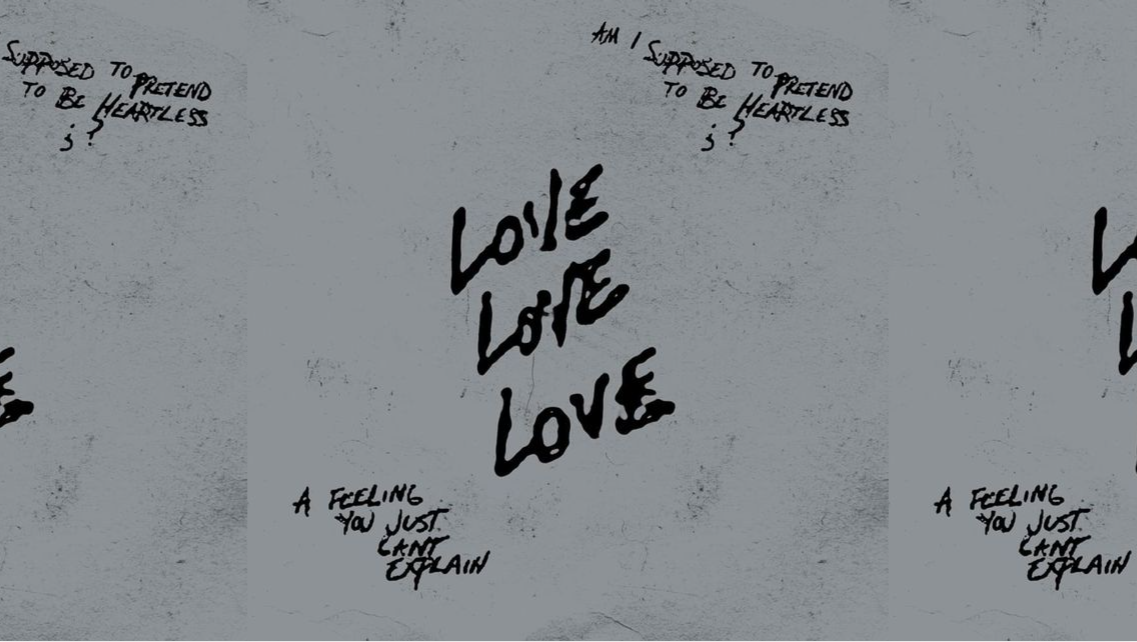 SUPPOSED TO PRETEND
TO BE HEARTLESS
¿?
AM I SUPPOSED TO PRETEND
TO BE HEARTLESS
¿?
LOVE
LOVE
LOVE
A FEELING
YOU JUST
CANT
EXPLAIN
A FEELING
YOU JUST
CANT
EXPLAIN